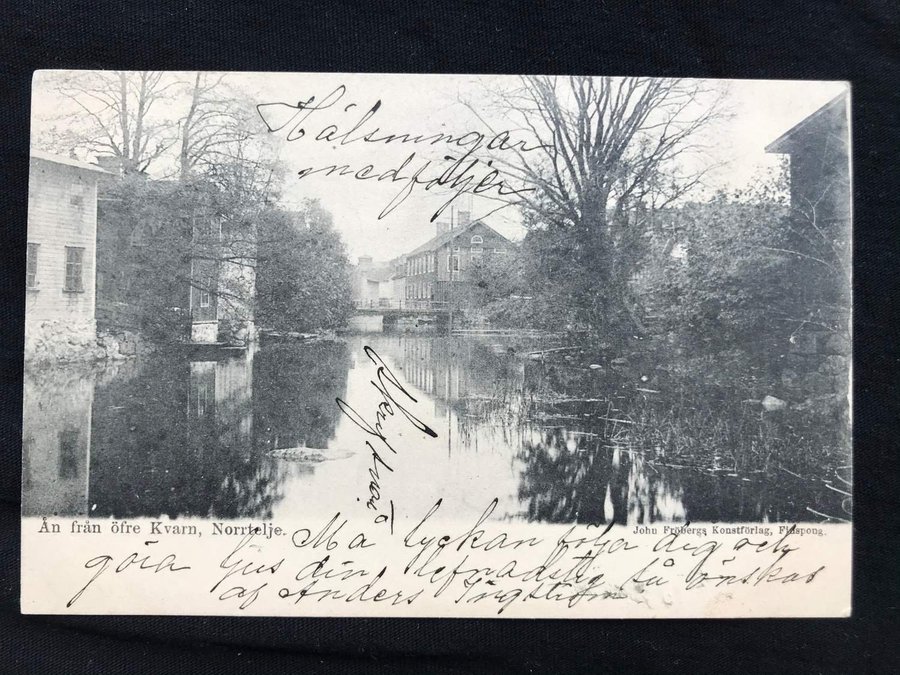 Hälsningar
medföljer
Skrif snart
Ån från öfre Kvarn, Norrtelje.
John Fröbergs Konstförlag, Finspong.
Må lyckan följa dig och
göra ljus din lefnadstig så önskas
af Anders Ingström